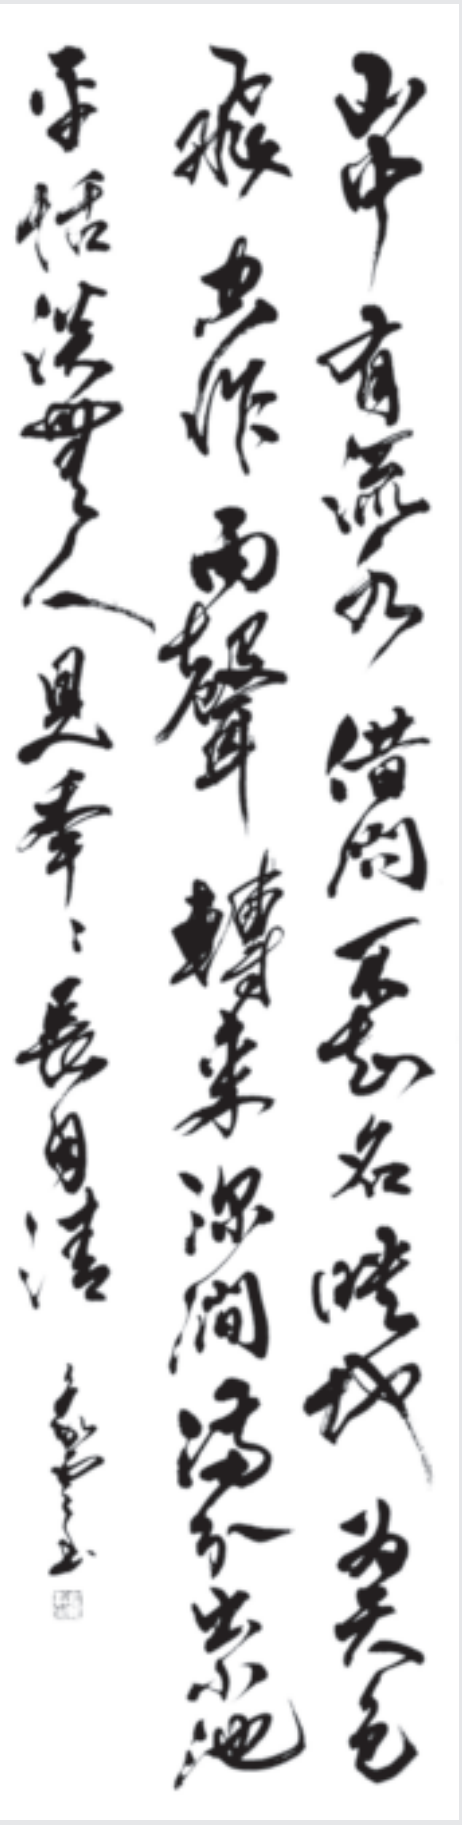 山中有流水借問不知名暎地為天色
飛空作雨聲轉來深澗滿分出小池
平恬淡無人見年〻長自清